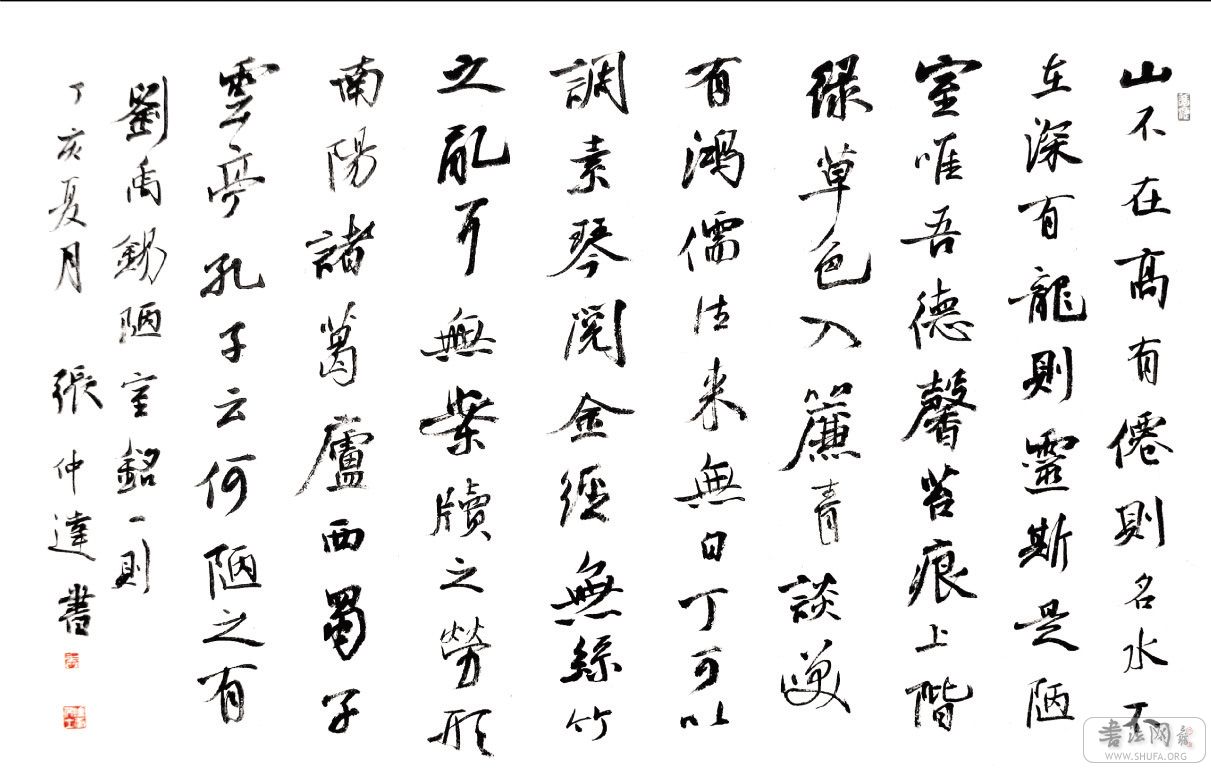 山不在高有僊則名水不
在深有龍則靈斯是陋
室唯吾德馨苔痕上階
緑草色入簾青談笑
有鴻儒往来無白丁可以
調素琴閲金經無絲竹
之亂耳無案牘之勞形
南陽諸葛廬西蜀子
雲亭孔子云何陋之有
劉禹錫陋室銘一則
丁亥夏月 張仲達書
書法网
WWW.SHUFA.ORG